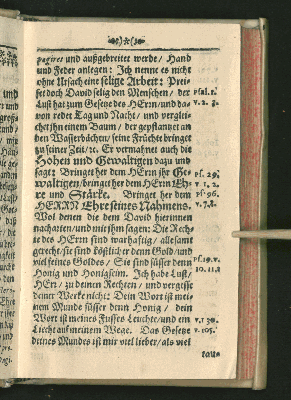 pagiret und außgebreitet werde / Hand
und Feder anlegen: Ich nenne es nicht
ohne Ursach eine selige Arbeit: Prei-
set doch David selig den Menschen / der
Psal. 1.
Lust hat zum Gesetze des HErrn / und da
v. 2. 3.
von redet Tag und Nacht / und verglei-
chet ihn einem Baum / der gepflantzet an
den Wasserbächen / seine Früchte bringet
zu seiner Zeit / ꝛc. Er vermahnet auch die
Hohen und Gewaltigen dazu und
saget: Bringet her dem HErrn ihr Ge-
ps. 29.
waltigen / bringet her dem HErrn Eh-
v. 1. 2.
re und Stärke. Bringet her dem
ps. 96.
HERRN Ehre seines Nahmens.
v. 7. 8.
Wol denen die dem David hierinnen
nacharten / und mit ihm sagen: Die Rech-
te des HErrn sind warhaftig / alle samt
gerecht / sie sind köstlicher denn Gold / und
viel feines Goldes / Sie sind süsser denn
ps. 19. v.
Honig und Honigseim. Ich habe Lust /
10. 11.
HErr / zu deinen Rechten / und vergisse
deiner Werke nicht: Dein Wort ist mei-
nem Munde süsser denn Honig / dein
Wort ist meines Fusses Leuchte / und ein
Liecht auf meinem Wege. Das Gesetze
v. 105.
deines Mundes ist mir viel lieber / als viel
tau-